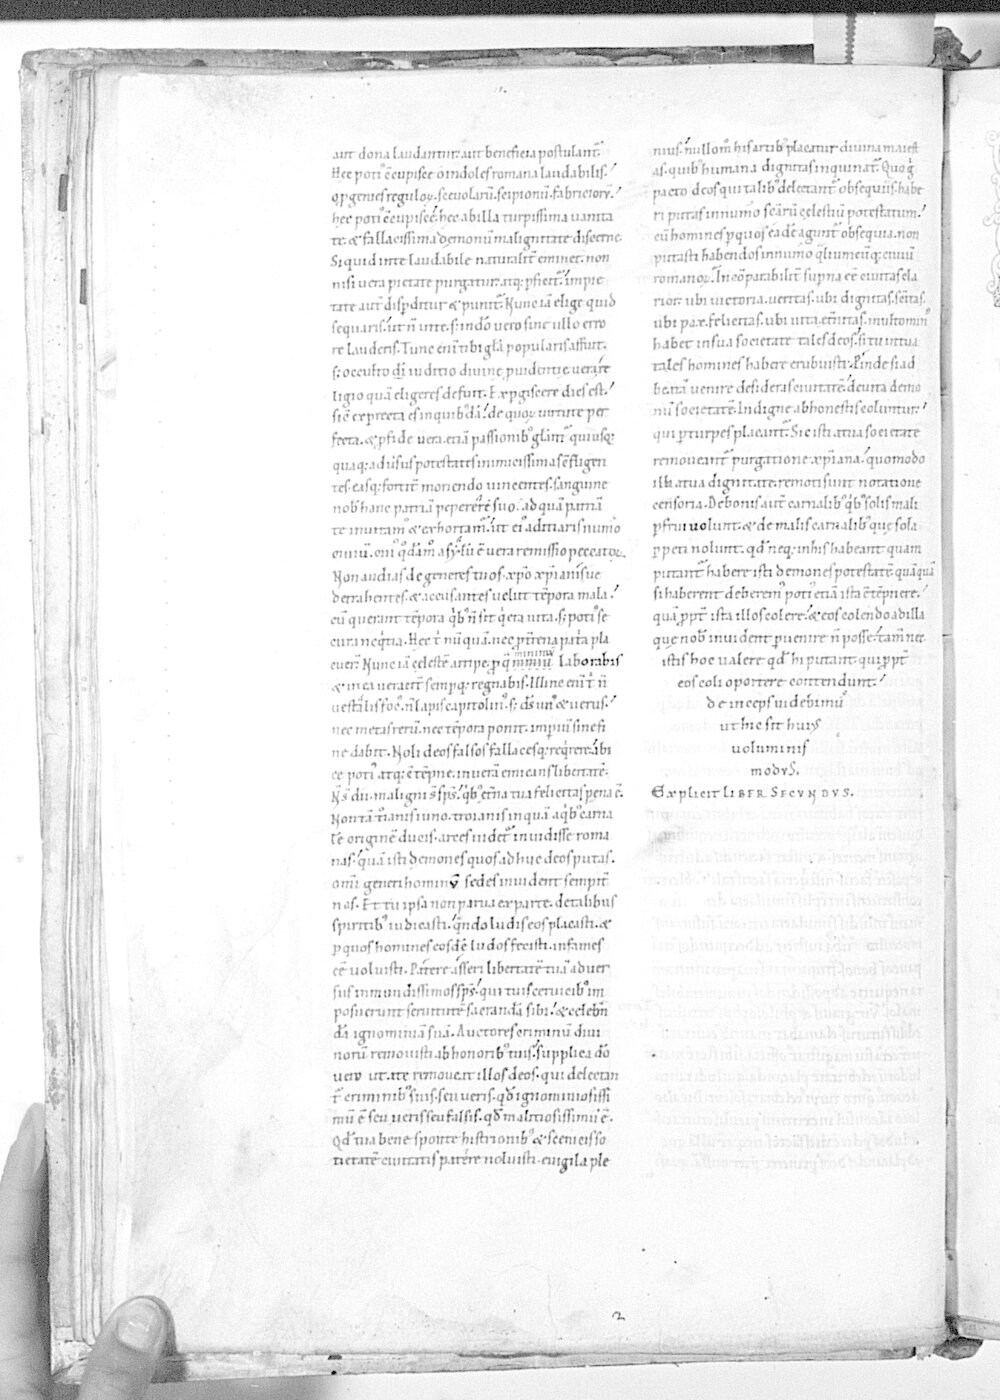 aut dona laudantur. aut beneficia postulant᷑.
Hec poti᷒ c̄cupisce o indoles romana laudabilis.
Op̄ genies reguloꝝ. scevolarū. scipionū. fabricioꝝ.
hec poti᷒ c̄cupisce. hec ab illa turpissima vanita
te. & fallacissima demonū malignitate discerne.
Si quid in te laudabile naturalit᷑ eminet. non
nisi vera pietate purgatur. atq; ꝑficit᷑. impie
tate aut̄ disꝑditur & punit᷑. Nunc iā elige quid
sequaris. ut n̄ in te. s; in dō vero sine ullo erro
re lauderis. Tunc enī tibi gl̄a popularis affuit.
s; occulto dī iuditio divine ꝓvidentie vera re
ligio quā eligeres defuit. Expgiscere dies est.
sic̄ exꝑrecta es in quib᷒dā. de quoꝝ virtute per
fecta. & ꝑ fide vera etiā passionib᷒ gl̄am᷑ qui usq;
quaq; adv̄sus potestates inimicissimas c̄fligen
tes. easq; fortit᷑ moriendo vincentes. sanguine
nob᷒ hanc patriā peperere suo. ad quā patriā
te invitam᷒ & exhortam᷑. ut ei᷒ aditiaris numo
civiū. cui᷒ q᷒dāmo asylū ē vera remissio peccatoꝝ.
Non audias degeneres tuos. xp̄o xp̄ianisve
detrahentes. & accusantes velut tēpora mala.
cū querant tēpora qb᷒ n̄ sit qeta vita. s; poti᷒ se
cura neqtia. Hec t᷑ nūquā. nec ꝓ t᷑rena pat᷑a pla
cuer᷑. Nunc iā celestē arripe. ꝓ q̄ minimū laborabis
& in ea veracit᷑ sempq; regnabis. Illinc enī t᷑ n̄
vestalis foc᷒. n̄ lapis capitolin᷒. s; ds̄ un᷒ & verus.
nec metas rerū. nec tēpora ponit. imꝑiū sine fi
ne dabit. Noli deos falsos fallacesq; reqrere. abi
ce poti᷒ atq; c̄tēpne. in verā emicans libertatē.
N̄ s̄ dii. maligni s̄ sps̄. qb᷒ et᷑na tua felicitas pena ē.
Non tā t᷑ianis iuno. troianis in quā a qb᷒ carna
lē originē ducis. arces videt᷑ invidisse roma
nas. quā isti demones quos adhuc deos putas.
omī generi hominū sedes invident sempit᷑
nas. Et tu ipsa non parva ex parte. de talibus
spiritib᷒ iudicasti. qndo ludis eos placasti. &
ꝑ quos homines eosdē ludos fecisti. infames
ēe voluisti. Patere asseri libertatē tuā adver
sus inmundissimos sps̄. qui tuis cervicib᷒ im
posuerunt servitutē sacrandā sibi. & celebrā
dā ignominiā suā. Auctores criminū divi
norū removisti ab honorib᷒ tuis. supplica dō
vero ut a te removeat illos deos. qui delectan
t᷑ criminib᷒ suis. seu veris. qd̄ ignominiosissi
mū ē. seu veris seu falsis. qd̄ malitiosissimū ē.
Qd̄ tua bene sponte histrionib᷒ & scenicis so
cietatē civitatis patere noluisti. evigila ple
nius. nullom̄ his artib᷒ placatur divina maiest
as. quib᷒ humana dignitas inquinat᷑. Quo g̊
pacto deos qui talib᷒ delectant᷑ obsequiis. habe
ri putas in numo scārū celestiū potestatum.
cū homines ꝑ quos eadē agunt᷑ obsequia. non
putasti habendos in numo qliumcūq; civiū
romanoꝝ. Incōparabilit᷑ supna ēe civitas cla
rior. ubi victoria. veritas. ubi dignitas. sc̄itas.
ubi pax. felicitas. ubi vita. et᷑nitas. multo min᷒
habet in sua societate tales deos. si tu in tua
tales homines habere erubuisti. Pinde si ad
beatā venire desideras civitatē. devita demo
nū societatē. Indigne ab honestis coluntur.
qui ꝑ turpes placant᷑. Sic isti a tua societate
removeant᷑ purgatione xp̄iana. quomodo
illi a tua dignitate remoti sunt notatione
censoria. De bonis aut̄ carnalib᷒ qb᷒ solis mali
ꝑfrui volunt. & de malis carnalib᷒ que sola
ꝑpeti nolunt. qd̄ neq; in his habeant quam
putant᷑ habere isti demones potestatē. quāquā
si haberent deberem᷒ poti᷒ etiā ista c̄tēpnere.
quā ꝓpt᷑ ista illos colere. & eos colendo ad illa
que nob᷒ invident ꝑvenire n̄ posse. tam̄ nec
istis hoc valere qd̄ hi putant. qui ꝓpt᷑
eos coli oportere contendunt.
deinceps videbim᷒
ut hic sit huis
voluminis
modus.
Explicit LIBER SECUNDUS.
2